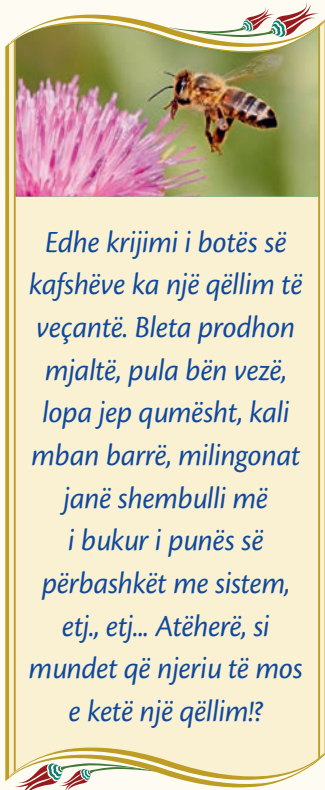 Edhe krijimi i botës së
kafshëve ka një qëllim të
veçantë. Bleta prodhon
mjaltë, pula bën vezë,
lopa jep qumësht, kali
mban barrë, milingonat
janë shembulli më
i bukur i punës së
përbashkët me sistem,
etj., etj... Atëherë, si
mundet që njeriu të mos
e ketë një qëllim!?